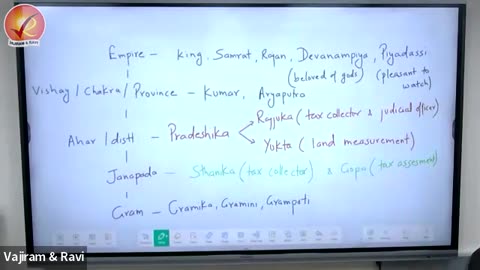 VAJIRAM & RAVI
Empire - King, Samrat, Rajan, Devanampiya, Piyadassi
(beloved of gods) (pleasant to watch)
Vishay / Chakra / Province - Kumar, Aryaputra
Rajjuka (tax collector & judicial officer)
Ahar / distt - Pradeshika
Yukta (land measurement)
Janapada - Sthanika (tax collector) & Gopa (tax assesment)
Gram - Gramika, Gramini, Grampati
Vajiram & Ravi